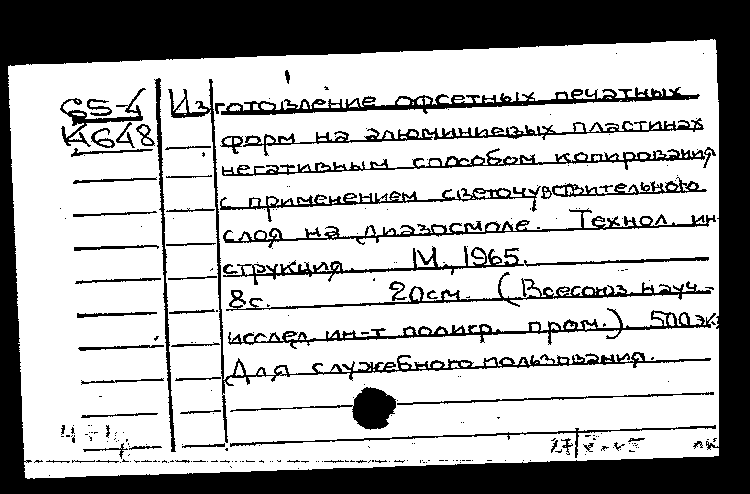 65-4
К648
Изготовление офсетных печатных
форм на алюминиевых пластинах
негативным способом копирования
с применением светочувствительного
слоя на диазосмоле. Технол. ин-
струкция. М., 1965.
8с. 20см. (Всесоюз. науч.-
исслед. ин-т полигр. пром.). 500 экз
Для служебного пользования.